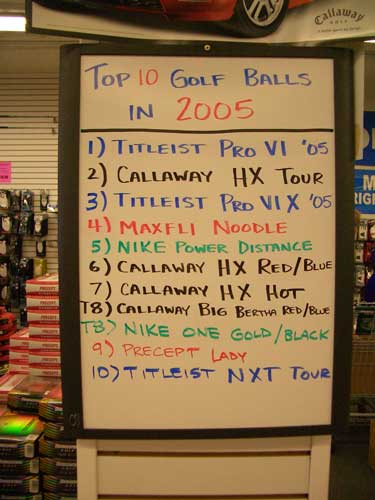 Callaway
GOLF
TOP 10 GOLF BALLS
IN 2005
1) TITLEIST PRO V1 '05
2) CALLAWAY HX TOUR
3) TITLEIST PRO V1 X '05
4) MAXFLI NOODLE
5) NIKE POWER DISTANCE
6) CALLAWAY HX RED/BLUE
7) CALLAWAY HX HOT
T8) CALLAWAY BIG BERTHA RED/BLUE
T8) NIKE ONE GOLD/BLACK
9) PRECEPT LADY
10) TITLEIST NXT TOUR